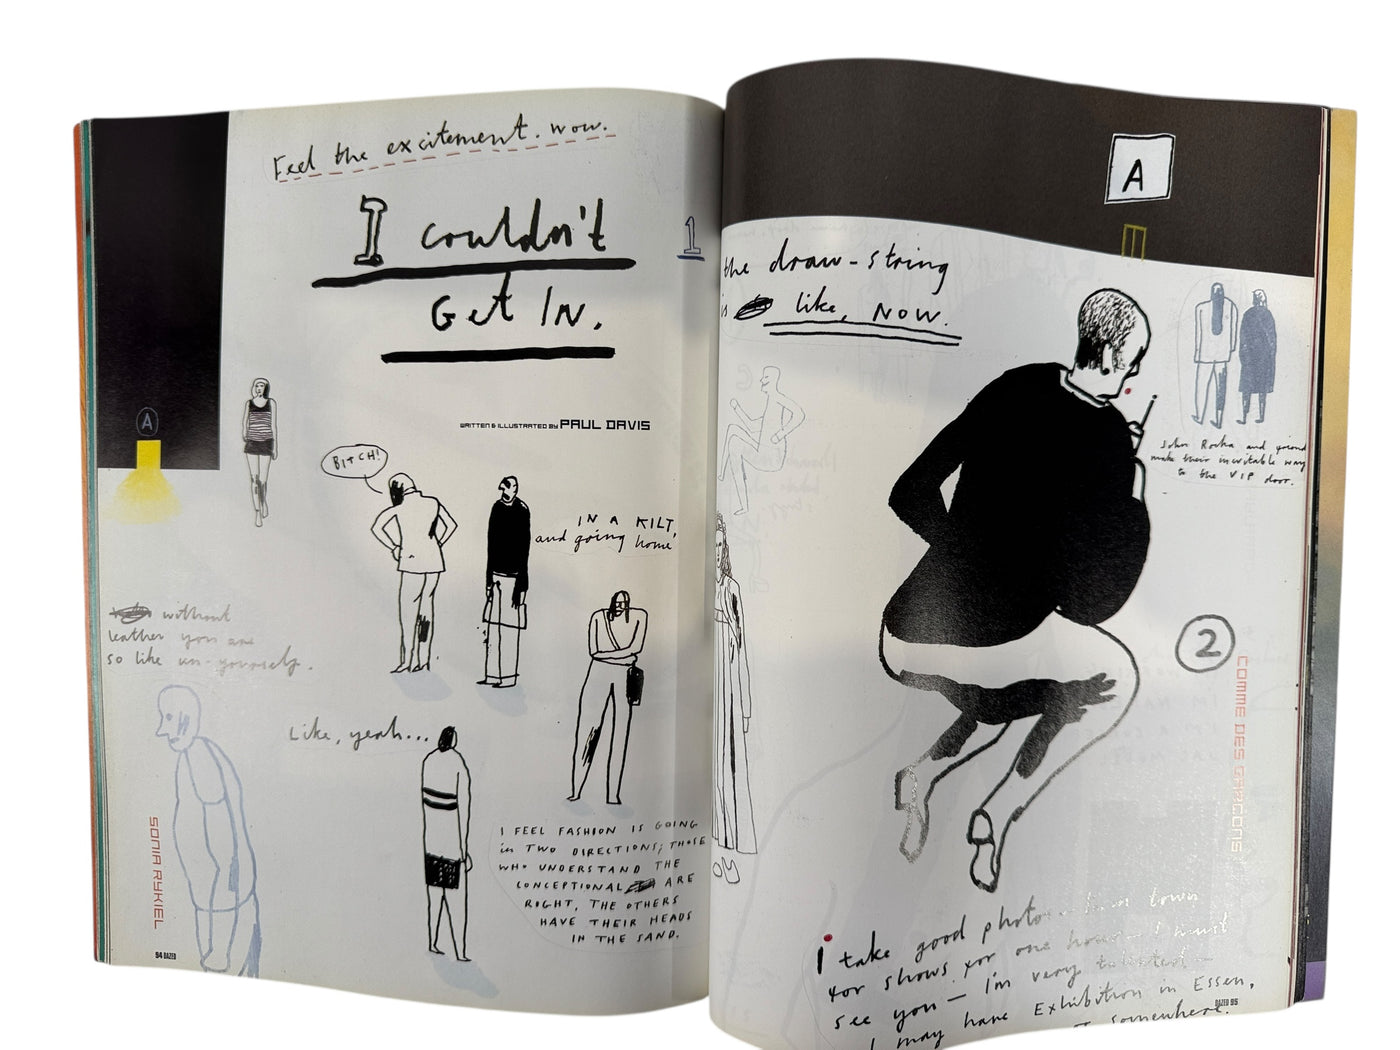 Feel the excitement. wow.
I couldn't
Get In.
WRITTEN & ILLUSTRATED BY PAUL DAVIS
A
BITCH!
IN A KILT,
and going home
without
leather you are
so like un-yourself.
Like, yeah...
I FEEL FASHION IS GOING
in TWO DIRECTIONS; THOSE
WHO UNDERSTAND THE
CONCEPTIONAL ARE
RIGHT, THE OTHERS
HAVE THEIR HEADS
IN THE SAND.
SONIA RYKIEL
94 DAZED
1
A
the draw-string
is like, NOW.
John Rocha and friend
make their inevitable way
to the VIP door.
2
COMME DES GARCONS
i take good photo in town
for shows for one hour I must
see you — I'm very talented —
I may have Exhibition in Essen,
or somewhere.
DAZED 95